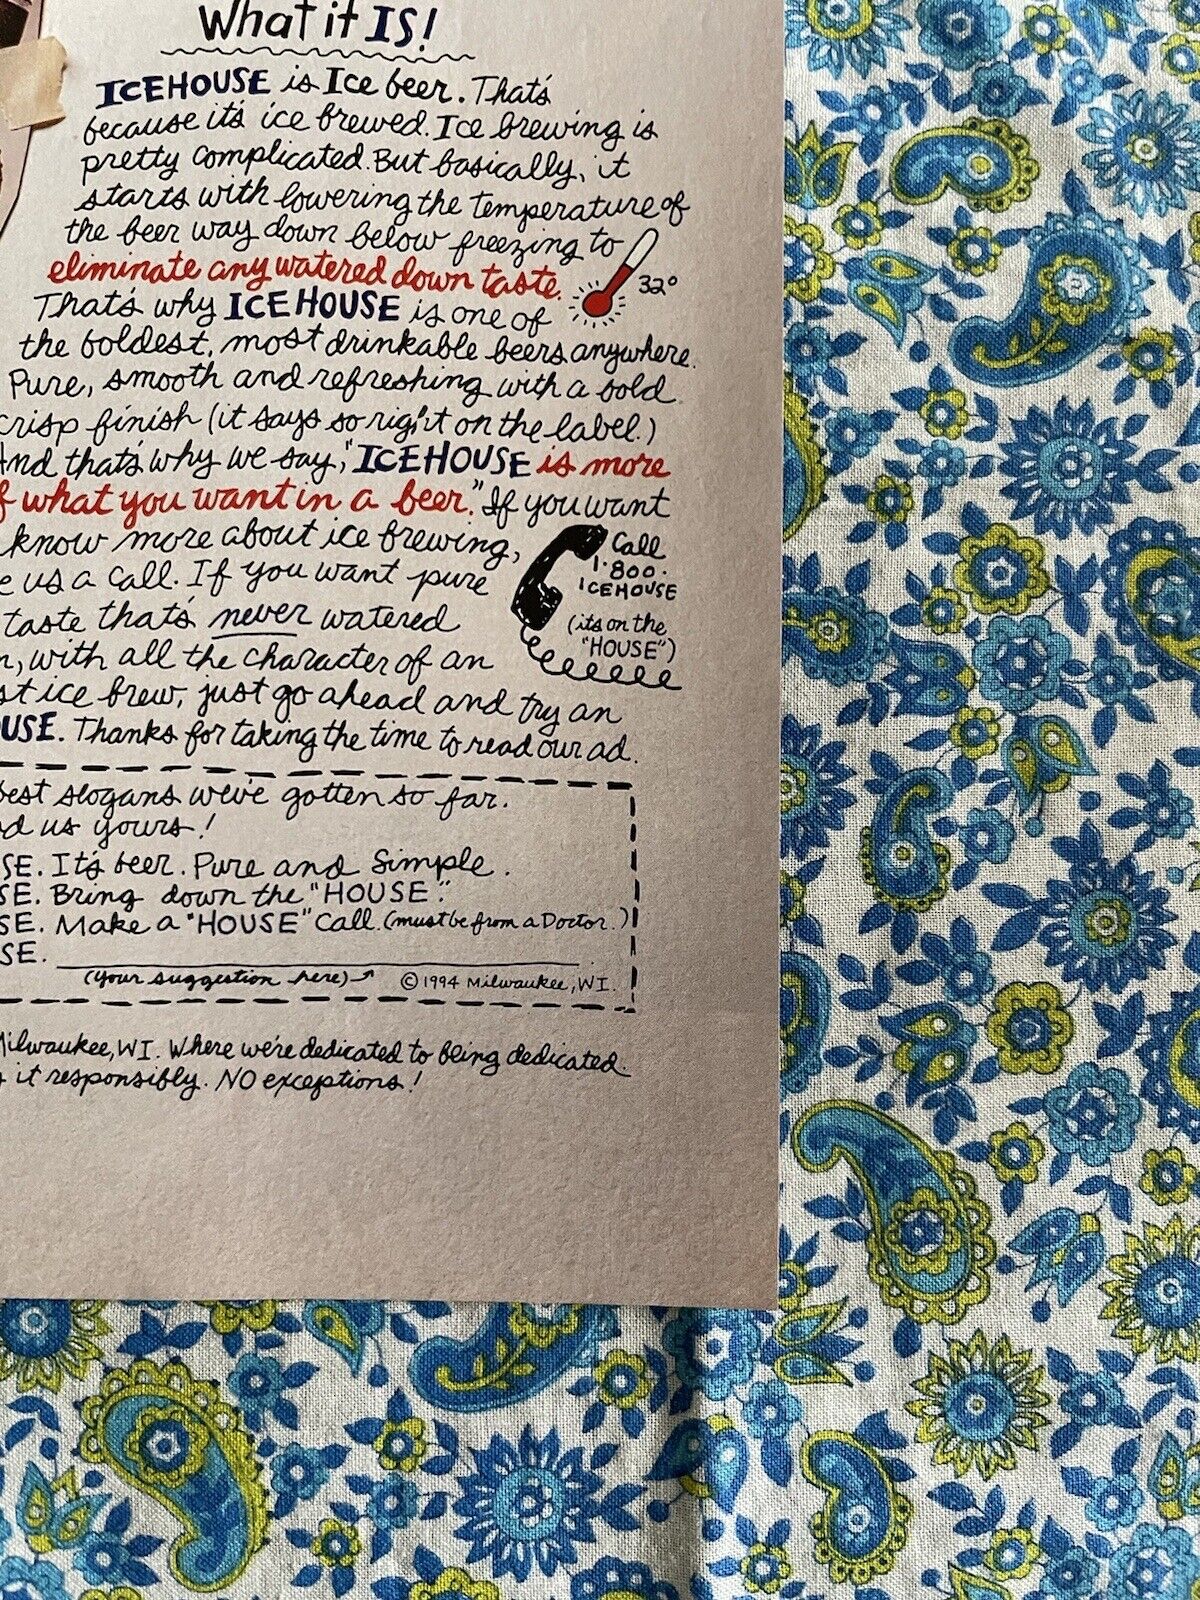 What it IS!
ICEHOUSE is Ice beer. That's
because it's ice brewed. Ice brewing is
pretty complicated. But basically, it
starts with lowering the temperature of
the beer way down below freezing to
eliminate any watered down taste.
32°
That's why ICEHOUSE is one of
the boldest, most drinkable beers anywhere.
Pure, smooth and refreshing with a bold
crisp finish (it says so right on the label.)
And that's why we say, "ICEHOUSE is more
of what you want in a beer." If you want
know more about ice brewing,
e us a call. If you want pure
taste that's never watered
n, with all the character of an
st ice brew, just go ahead and try an
USE. Thanks for taking the time to read our ad.
Call
1·800·
ICEHOUSE
(its on the
"HOUSE")
best slogans we've gotten so far.
d us yours!
SE. It's beer. Pure and Simple.
SE. Bring down the "HOUSE".
SE. Make a "HOUSE" Call. (must be from a Doctor.)
SE.
(your suggestion here)
© 1994 Milwaukee, WI.
Milwaukee, WI. Where we're dedicated to being dedicated.
it responsibly. NO exceptions!